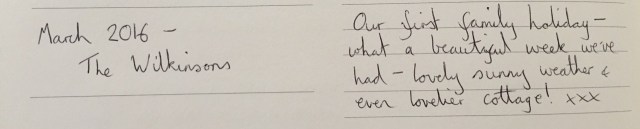 March 2016 -
The Wilkinsons
Our first family holiday -
what a beautiful week we've
had - lovely sunny weather &
even lovelier cottage! xxx